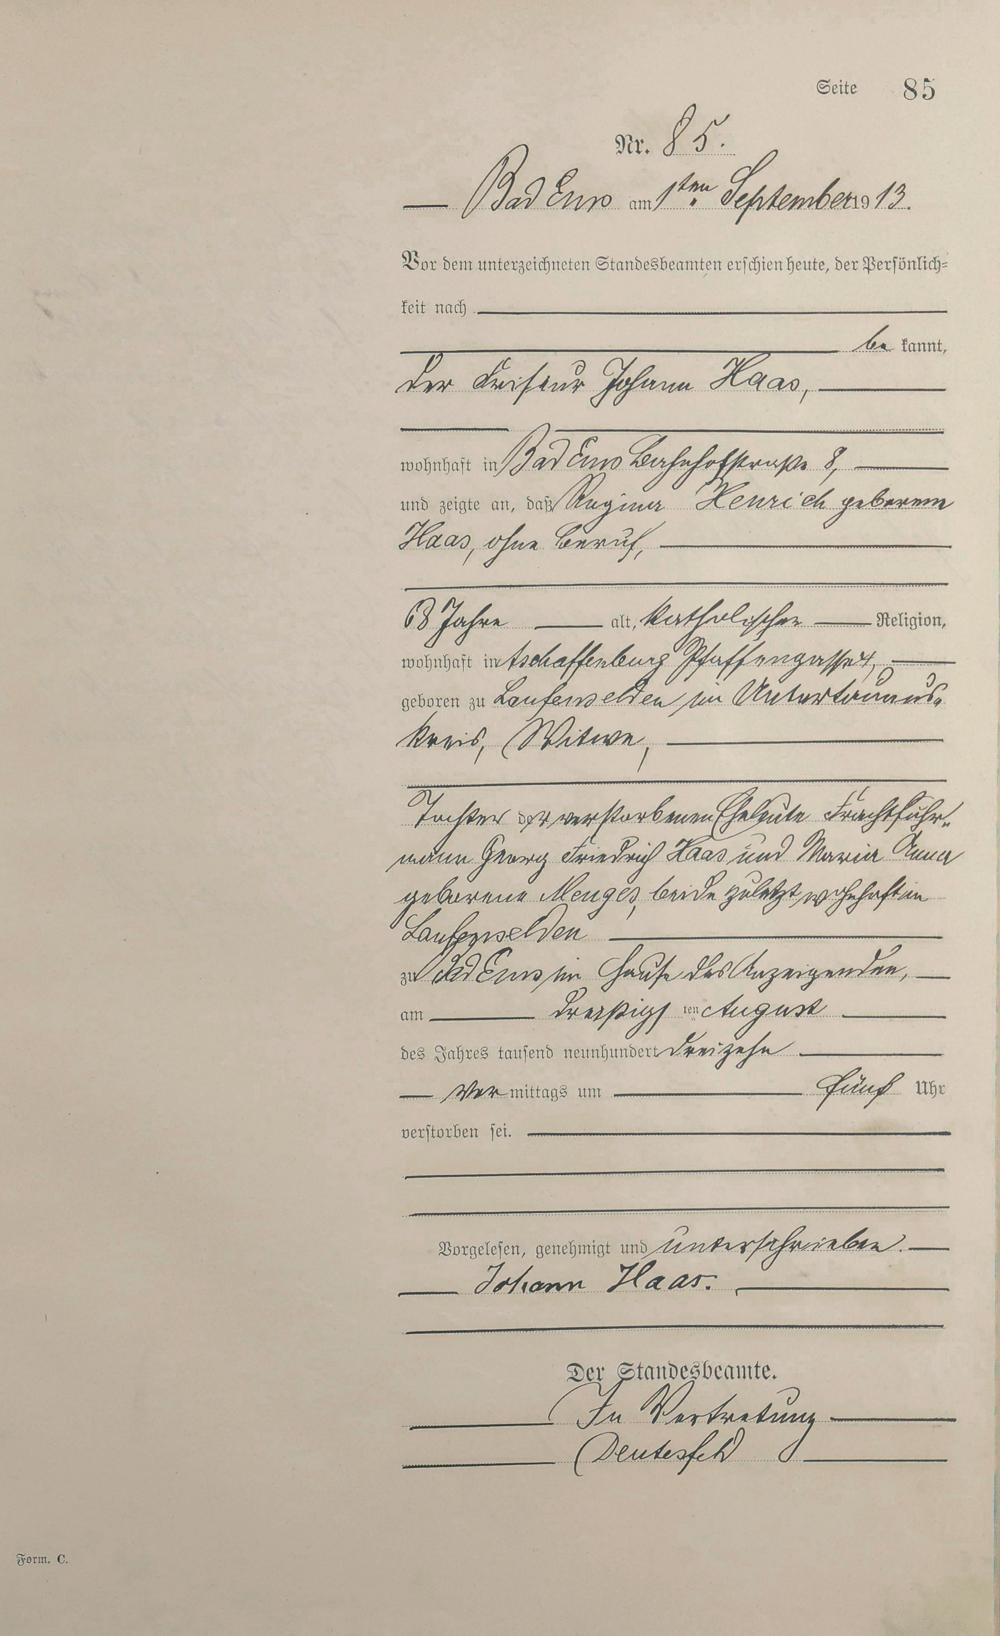 Seite 85
Nr. 85.
Bad Ems am 1ten September 1913.
Vor dem unterzeichneten Standesbeamten erschien heute, der Persönlich-
keit nach
be kannt,
der Friseur Johann Haas,
wohnhaft in Bad Ems Bahnhofstraße 8,
und zeigte an, daß Regina Henrich geborene
Haas, ohne Beruf,
68 Jahre alt, katholischer Religion,
wohnhaft in Aschaffenburg Pfaffengasse
geboren zu Laufenselden im Untertaunus-
kreis, Witwe,
Tochter der verstorbenen Eheleute Frachtfuhr-
mann Georg Friedrich Haas und Maria Anna
geborene Menges, beide zuletzt wohnhaft in
Laufenselden
zu Bad Ems im Hause des Anzeigenden,
am dreißigsten August
des Jahres tausend neunhundert dreizehn
Vor mittags um fünf Uhr
verstorben sei.
Vorgelesen, genehmigt und unterschrieben.
Johann Haas.
Der Standesbeamte.
In Vertretung
Form. C.